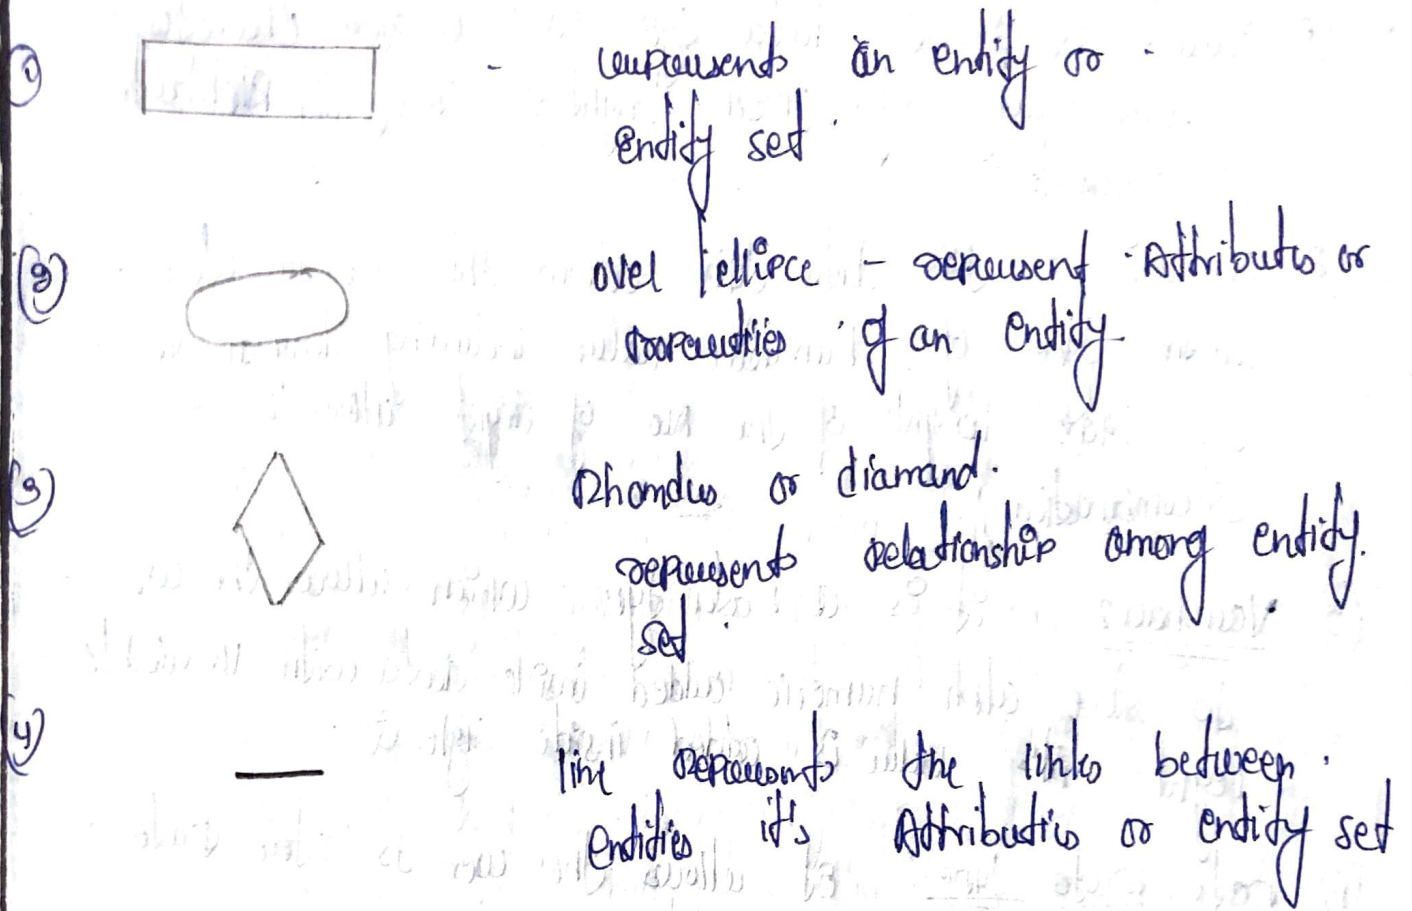 1) - represents an entity or
entity set.
2) ovel / ellipce - represent Attributes or
properties of an entity.
3) Rhombus or diamand.
represents relationship among entity.
set.
4) line represents the links between
entities it's Attributies or entity set